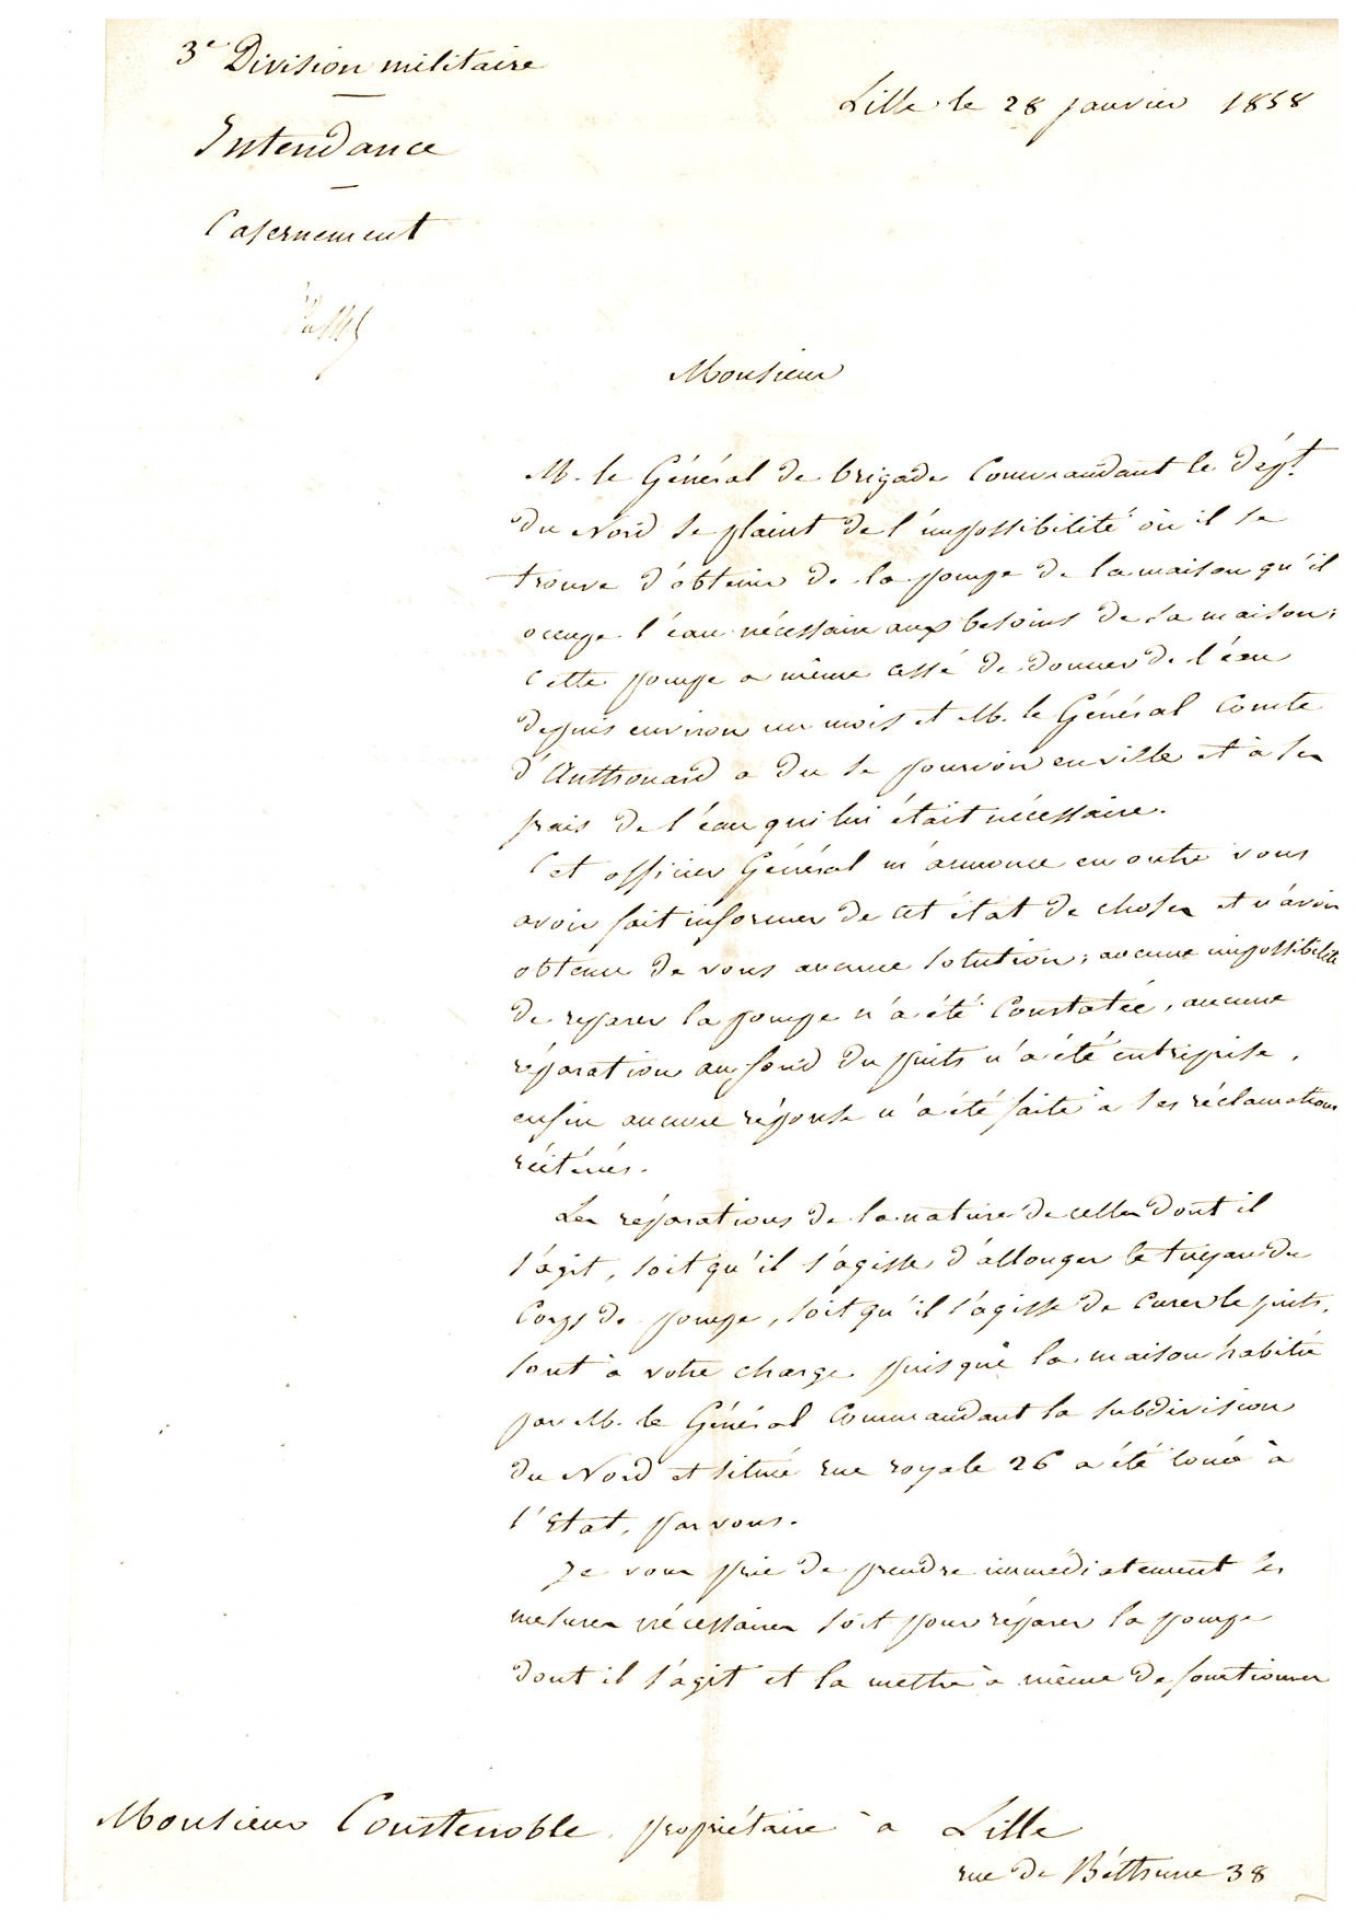 3e Division militaire
Lille le 28 janvier 1858
Intendance
Casernement
Monsieur
M. le Général de brigade Commandant le dépt.
du Nord se plaint de l'impossibilité où il se
trouve d'obtenir de la pompe de la maison qu'il
occupe l'eau nécessaire aux besoins de sa maison;
cette pompe a même cessé de donner de l'eau
depuis environ un mois et M. le Général Comte
d'Anthouard a du se pourvoir en ville et à ses
frais de l'eau qui lui était nécessaire.
Cet officier Général m'annonce en outre vous
avoir fait informer de cet état de choses et n'avoir
obtenu de vous aucune solution; aucune impossibilité
de reparer la pompe n'a été Constatée, aucune
réparation au fond du puits n'a été entreprise,
enfin aucune réponse n'a été faite à ses réclamations
réitérées.
Les réparations de la nature de celles dont il
s'agit, soit qu'il s'agisse d'allonger le tuyau du
Corps de pompe, soit qu'il s'agisse de curer le puits,
sont à votre charge puisque la maison habitée
par M. le Général Commandant la subdivision
du Nord et située rue royale 26 a été louée à
l'Etat, par vous.
Je vous prie de prendre immédiatement les
mesures nécessaires soit pour réparer la pompe
dont il s'agit et la mettre à même de fonctionner
Monsieur Constenoble propriétaire à Lille
rue de Béthune 38